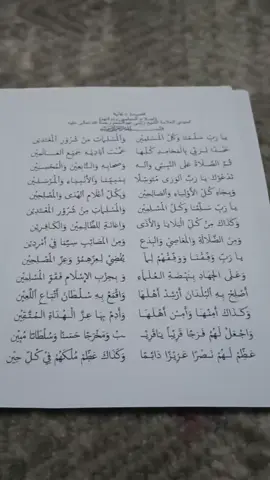 يَا رَبِّ سَلِّمْنَا وَكُلَّ الْمُسْلِمِيْنَ وَالْمُسْلِمَاتِ مِنْ شُرُوْرِ الْمُعْتَدِيْنَ
حَمْدًا لِرَبِّيْ بِالْمَحَامِدِ كُلِّهَا عَمَّتْ أَيَادِيْهِ جَمِيْعَ الْعَالَمِيْنَ
ثُمَّ الصَّلَاةُ عَلَى النَّبِيِّ وَآلِهِ وَصَحَابِهِ وَالتَّابِعِيْنَ وَالْمُحْسِنِيْنَ
نَدْعُوْكَ يَا رَبَّ الْوَرَى مُتَوَسِّلًا بِنَبِيِّنَا وَالْأَنْبِيَاءِ وَالْمُرْسَلِيْنَ
وَبِجَاهِ كُلِّ الْأَوْلِيَاءِ وَالصَّالِحِيْنَ وَبِكُلِّ أَعْلَامِ الْهُدَى وَالْمُصْلِحِيْنَ
يَا رَبِّ سَلِّمْنَا وَكُلَّ الْمُسْلِمِيْنَ وَالْمُسْلِمَاتِ مِنْ شُرُوْرِ الْمُعْتَدِيْنَ
وَكَذَاكَ مِنْ كُلِّ الْبَلَايَا وَالْأَذَى وَإِهَانَةِ الظَّالِمِيْنَ وَالْكَافِرِيْنَ
وَمِنَ الضَّلَالَةِ وَالْمَعَاصِيْ وَالْبِدَعِ وَمِنَ الْمَصَائِبِ سِيَّمَا فِيْ
يَا رَبِّ وَفِّقْنَا وَوَفِّقْهُمْ لِمَا وَعِزَّ الْمُصْلِحِيْنَ
وَعَلَى الْجِهَادِ بِنَهْضَةِ الْعُلَمَاءِ وَبِحِزْبِ الْإِسْلَامِ قَوِّ الْمُسْلِمِيْنَ
أَصْلِحْ بِهِ الْبُلْدَانَ أَرْشِدْ أَهْلَهَا وَاقْمَعْ بِهِ سُلْطَانَ أَتْبَاعِ اللَّعِيْنَ
وَكَذَاكَ أَمِّنْهَا وَأَمِّنْ أَهْلَهَا وَأَدِمْ بِهَا عِزَّ الْهُدَاةِ الْمُتَّقِيْنَ
وَاجْعَلْ لَهُمْ فَرَجًا قَرِيْبًا يَا قَرِيْبُ وَمَخْرَجًا حَسَنًا وَسُلْطَانًا مُبِيْنَ
عَظِّمْ لَهُمْ نَصْرًا عَزِيْزًا دَائِمًا وَكَذَاكَ عَظِّمْ مُلْكَهُمْ فِيْ كُلِّ حِيْنَ